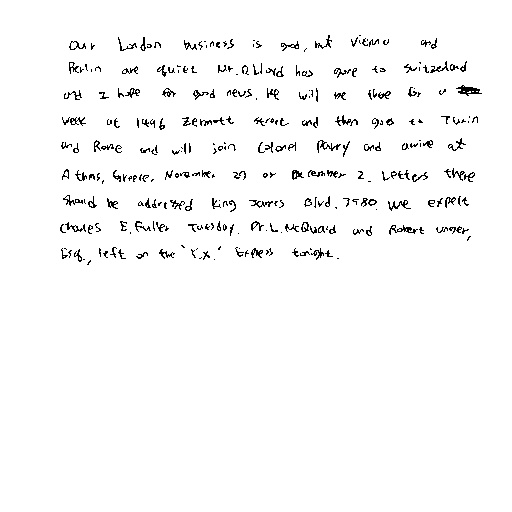 Our London business is good, but Vienna and
Berlin are quiet Mr. D. Lloyd has gone to Switzerland
and I hope for good news. He will be there for a
week at 1496 Zermott street and then goes to Turin
and Rome and will join Colonel Parry and arrive at
Athens, Greece, November 27 or December 2. Letters there
should be addressed King James Blvd. 3580 We expect
Charles E. Fuller Tuesday. Dr. L. McQuaid and Robert Unger,
Esq., left on the "Y.X." Express tonight.